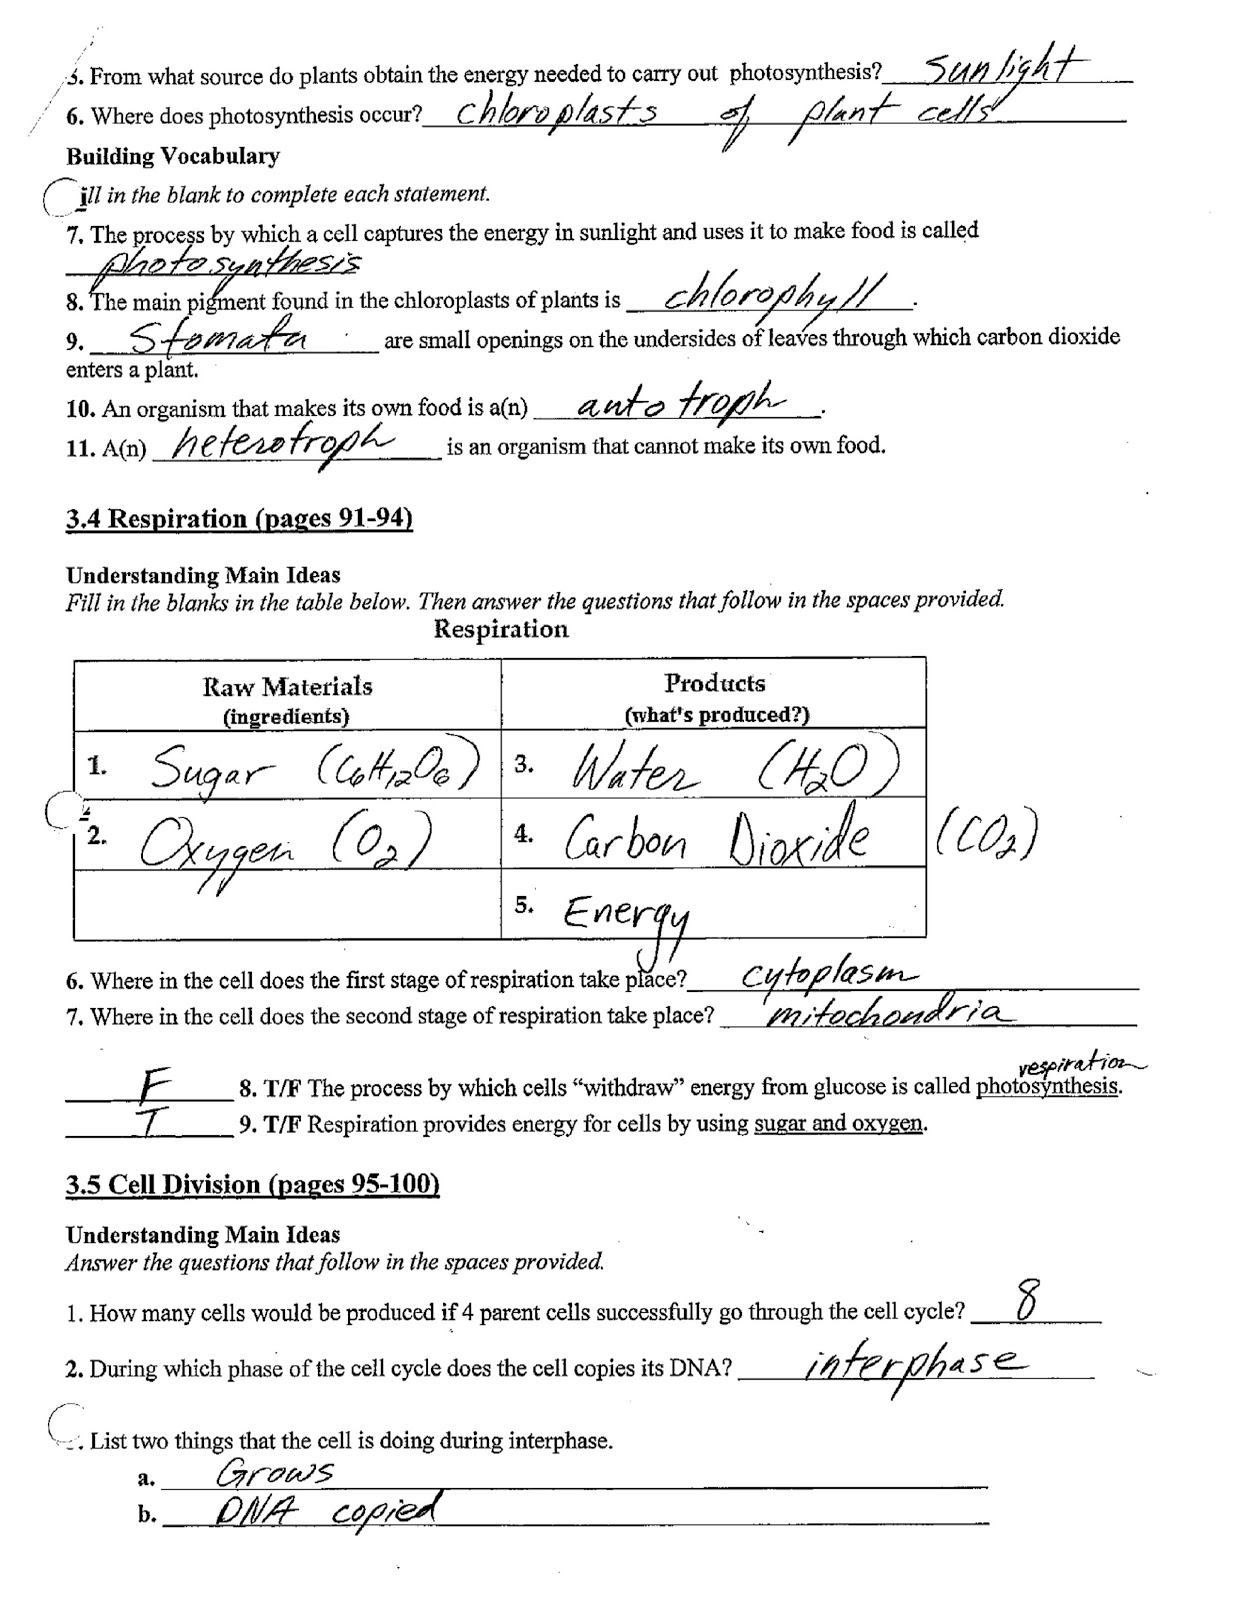 5. From what source do plants obtain the energy needed to carry out photosynthesis? Sunlight
6. Where does photosynthesis occur? chloroplasts of plant cells
Building Vocabulary
ill in the blank to complete each statement.
7. The process by which a cell captures the energy in sunlight and uses it to make food is called
photosynthesis
8. The main pigment found in the chloroplasts of plants is chlorophyll.
9. Stomata are small openings on the undersides of leaves through which carbon dioxide
enters a plant.
10. An organism that makes its own food is a(n) autotroph.
11. A(n) heterotroph is an organism that cannot make its own food.
3.4 Respiration (pages 91-94)
Understanding Main Ideas
Fill in the blanks in the table below. Then answer the questions that follow in the spaces provided.
Respiration
Raw Materials Products
(ingredients) (what's produced?)
1. Sugar (C6H12O6) 3. Water (H2O)
2. Oxygen (O2) 4. Carbon Dioxide (CO2)
5. Energy
6. Where in the cell does the first stage of respiration take place? cytoplasm
7. Where in the cell does the second stage of respiration take place? mitochondria
respiration
F 8. T/F The process by which cells “withdraw” energy from glucose is called photosynthesis.
T 9. T/F Respiration provides energy for cells by using sugar and oxygen.
3.5 Cell Division (pages 95-100)
Understanding Main Ideas
Answer the questions that follow in the spaces provided.
1. How many cells would be produced if 4 parent cells successfully go through the cell cycle? 8
2. During which phase of the cell cycle does the cell copies its DNA? interphase
. List two things that the cell is doing during interphase.
a. Grows
b. DNA copied